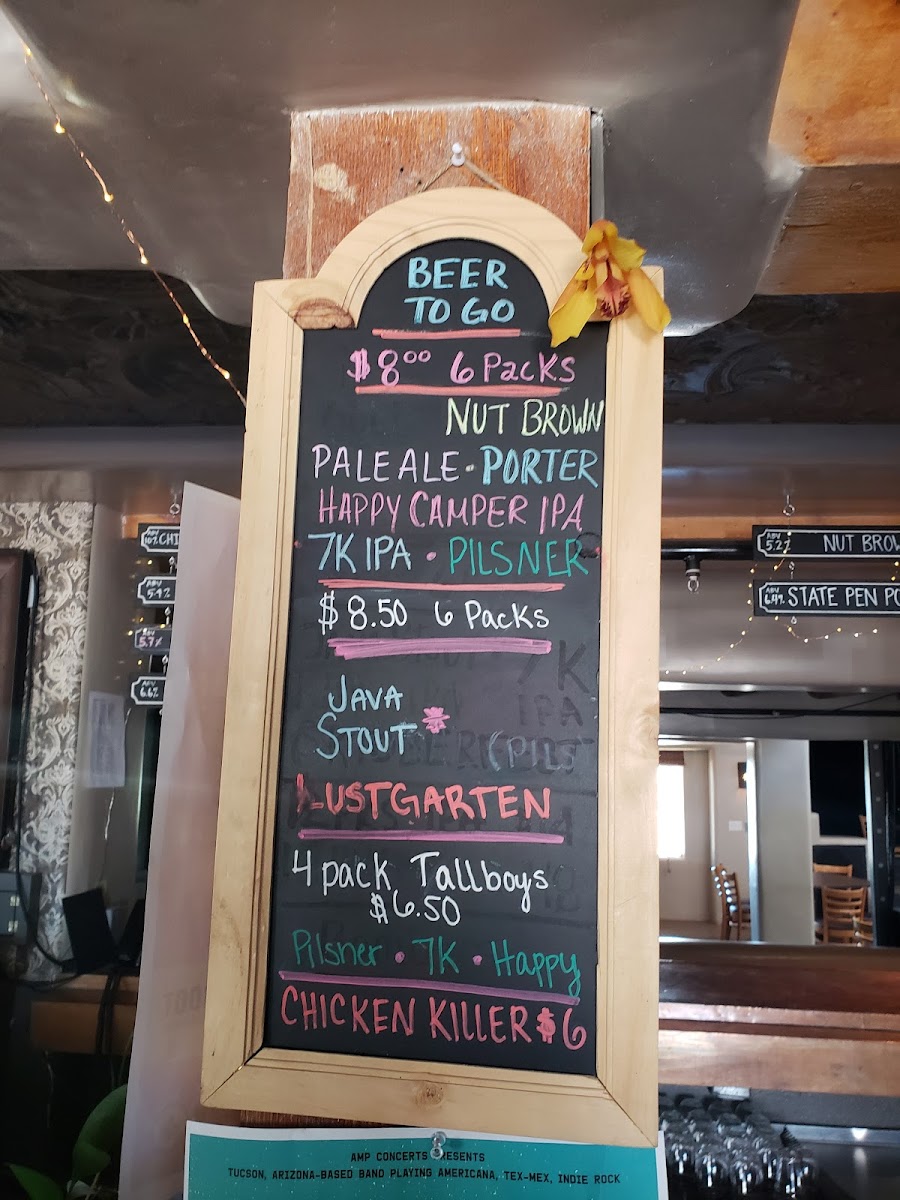 BEER
TO GO
$8.00 6 Packs
NUT BROWN
PALE ALE • PORTER
HAPPY CAMPER IPA
7K IPA • PILSNER
$8.50 6 Packs
JAVA
STOUT
LUSTGARTEN
4 pack Tallboys
$6.50
Pilsner • 7K • Happy
CHICKEN KILLER $6
ABV
10% CHI
ABV
5.4%
ABV
5.7%
ABV
6.6%
ABV
5.2% NUT BROW
ABV
STATE PEN PO
7K
IPA
(PILS
AMP CONCERTS ESENTS
TUCSON, ARIZONA-BASED BAND PLAYING AMERICANA, TEX-MEX, INDIE ROCK